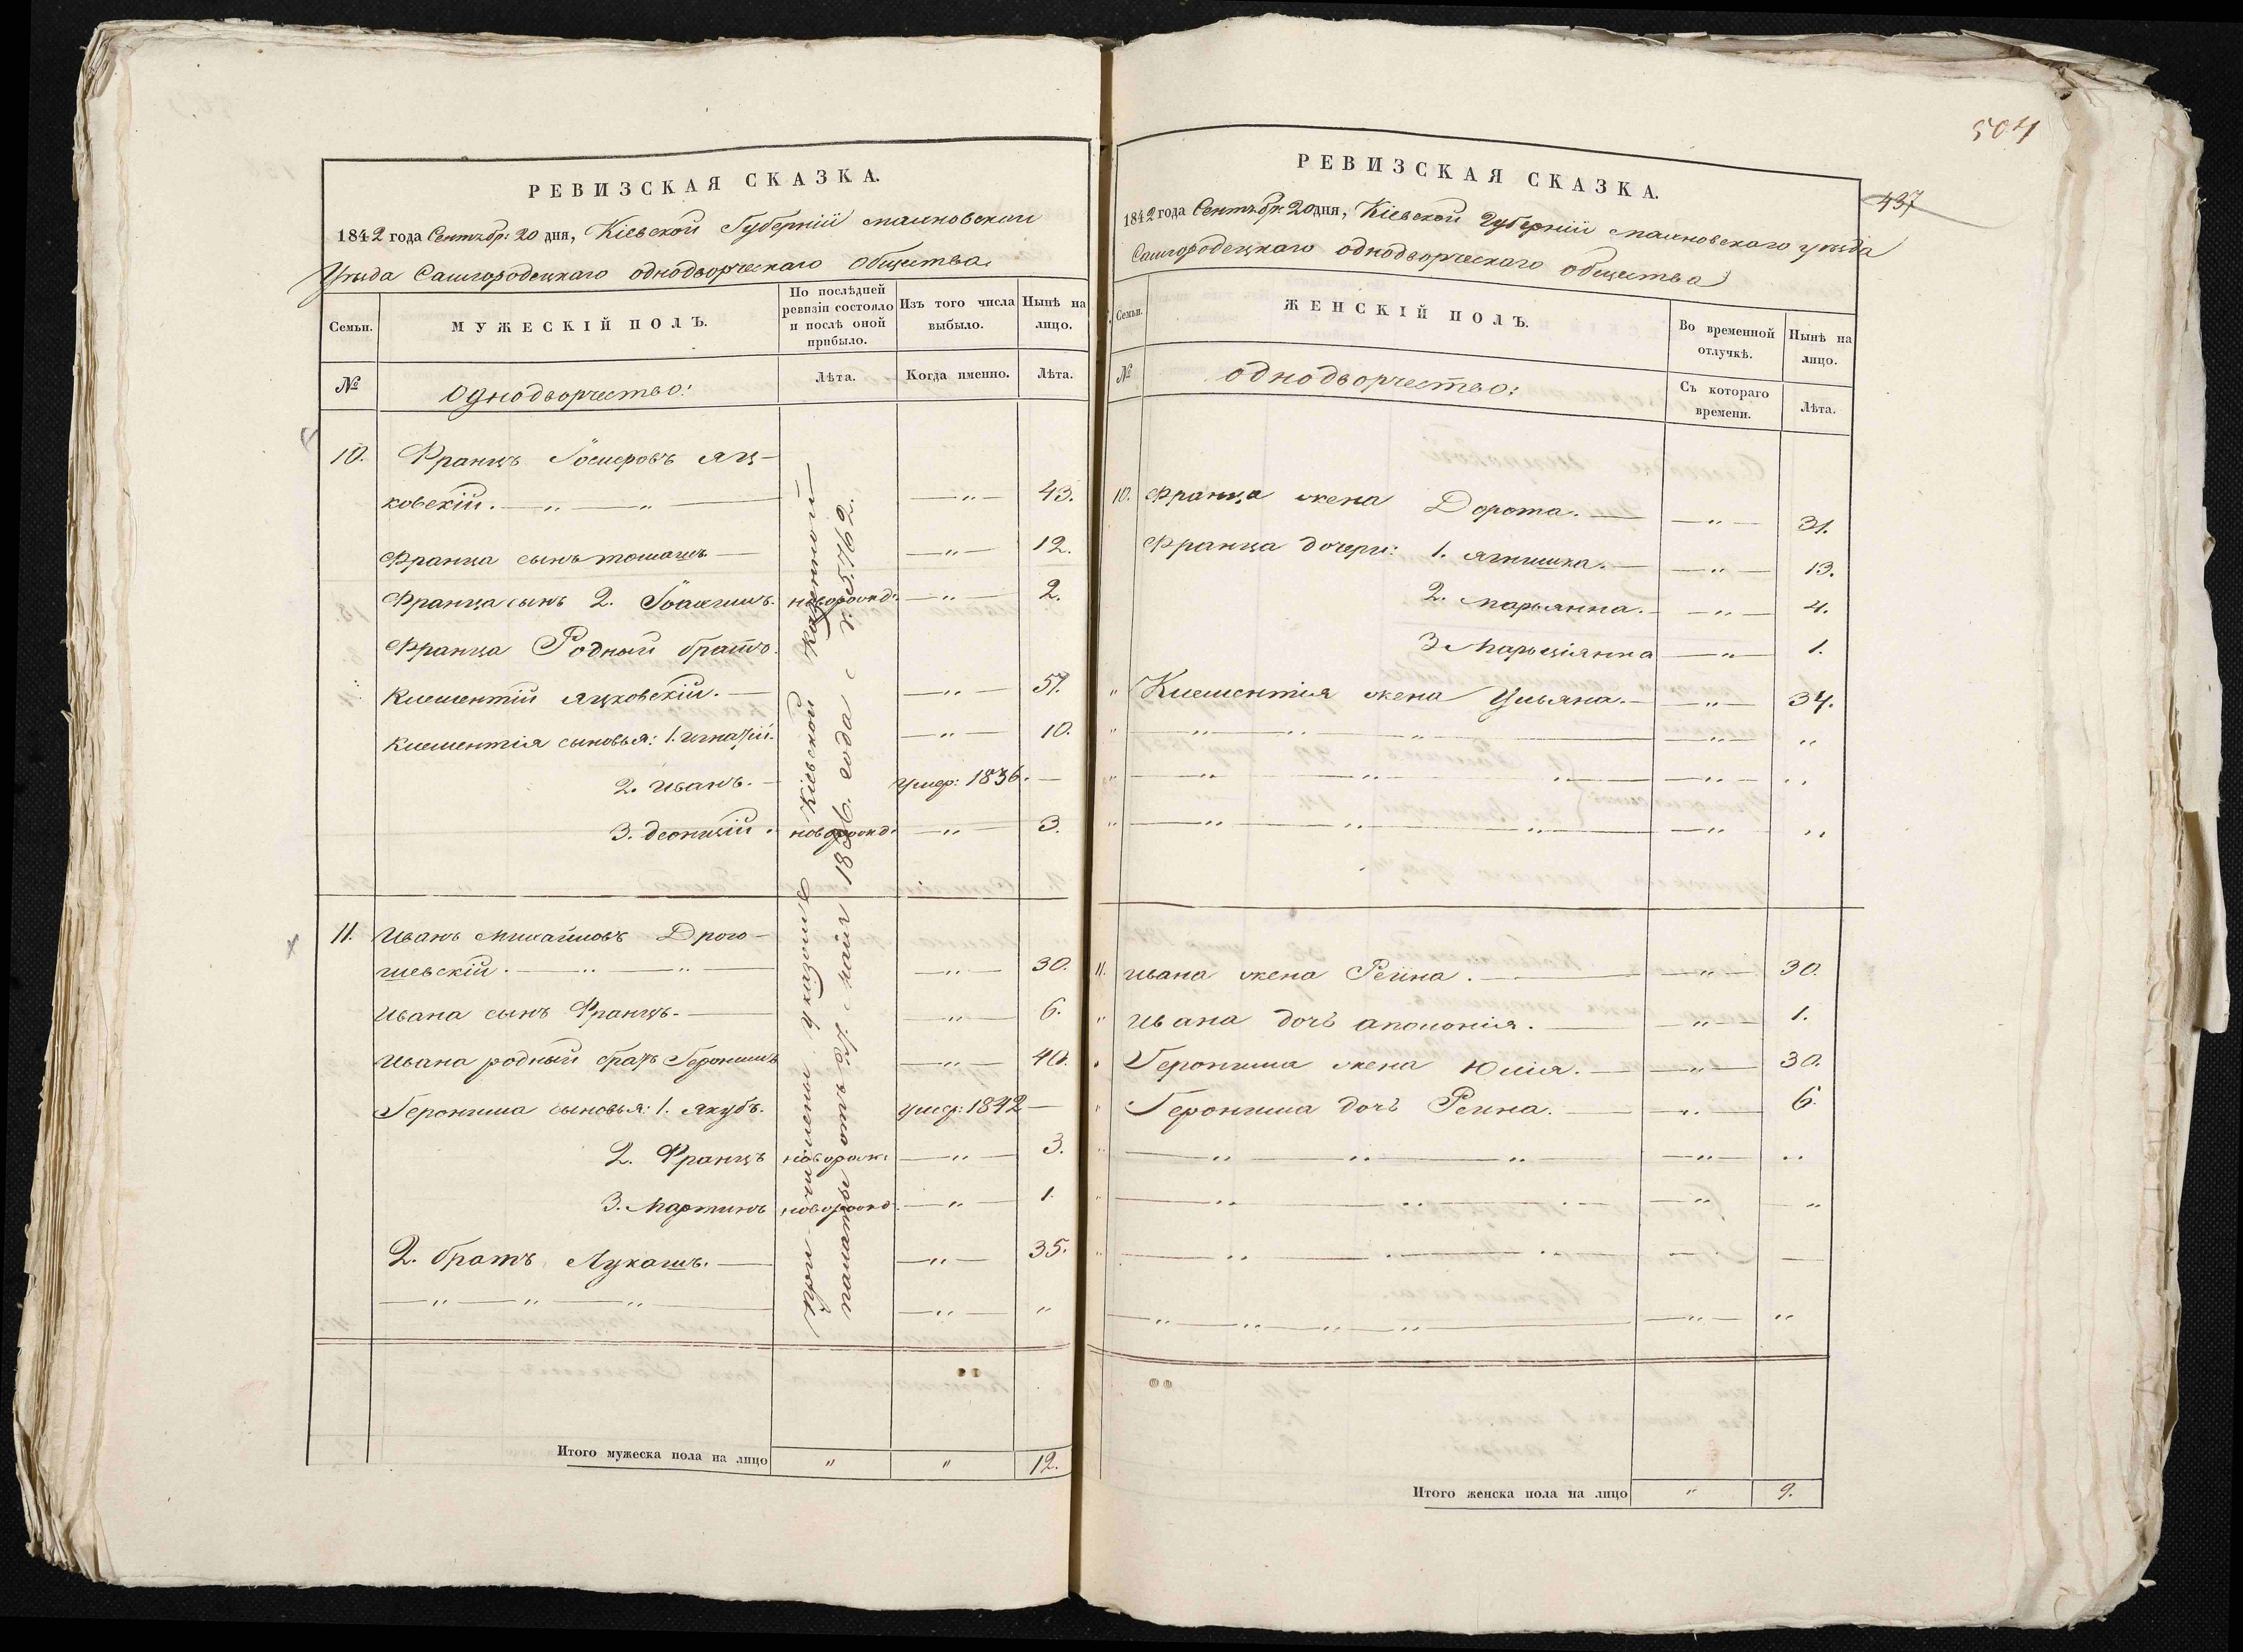 РЕВИЗСКАЯ СКАЗКА.
1842 года Сентябр: 20 дня, Кіевской Губерніи Махновскаго
Уѣзда Самгородецкаго однодворческаго Общества
Семьи.
МУЖЕСКІЙ ПОЛЪ.
По послѣдней ревизіи состояло и послѣ оной прибыло.
Изъ того числа выбыло.
Нынѣ на лицо.
№
Однодворчество:
Лѣта.
Когда именно.
Лѣта.
10. Францъ Яц-
ковскій. — „ — „ — — „ — 43.
Франца сынъ Томашъ — — „ — 12.
Франца сынъ 2. Іоакимъ. новорожд: — „ — 2.
Франца Родный братъ
Климентій Яцковскій. — — „ —
Климентія сыновья: 1. Игнатій. — „ — 10.
2. Иванъ. — умер: 1836. —
3. Деонизій. новорожд. — „ — 3.
11. Иванъ Михайловъ Дрого-
шевскій. — „ — „ — — „ — 30.
Ивана сынъ Францъ. — — „ — 6.
Ивана родный братъ Геронимъ — „ — 40.
Геронима сыновья: 1. Якубъ. умер: 1842 —
2. Францъ новорож: — „ — 3.
3. Мартинъ новорожд — „ — 1.
2. братъ Лукашъ. — — „ — 35.
— „ — „ — „ — — „ — „
при Кіевской Казенной
палаты отъ Маія 1836. года с №. 5762.
Итого мужеска пола на лицо „ „ 12.
504
437
РЕВИЗСКАЯ СКАЗКА.
1842 года Сентябр: 20 дня, Кіевской Губерніи Махновскаго уѣзда
Самгородецкаго однодворческаго общества
Семьи.
ЖЕНСКІЙ ПОЛЪ.
Во временной отлучкѣ.
Нынѣ на лицо.
№
однодворчество:
Съ котораго времени.
Лѣта.
10. Франца жена Дорота. — — „ — 31.
Франца дочери: 1. Ягнишка. — — „ — 13.
2. Марьянна. — — „ — 4.
3 Марціянна — „ — 1.
„ Климентія жена Ульяна. — — „ — 34.
„ — „ — „ — „ — — „ — „
„ — „ — „ — „ — — „ — „
„ — „ — „ — „ — — „ — „
11. Ивана жена Реина. — — „ — 30.
„ Ивана дочь Аполонія. — — „ — 1.
„ Геронима жена Юлія. — — „ — 30.
„ Геронима дочь Реина. — — „ — 6.
„ — „ — „ — „ — — „ — „
„ — „ — „ — „ — — „ — „
„ — „ — „ — „ — — „ — —
— „ — „ — „ — „ — — „ — „
Итого женска пола на лицо „ 9.